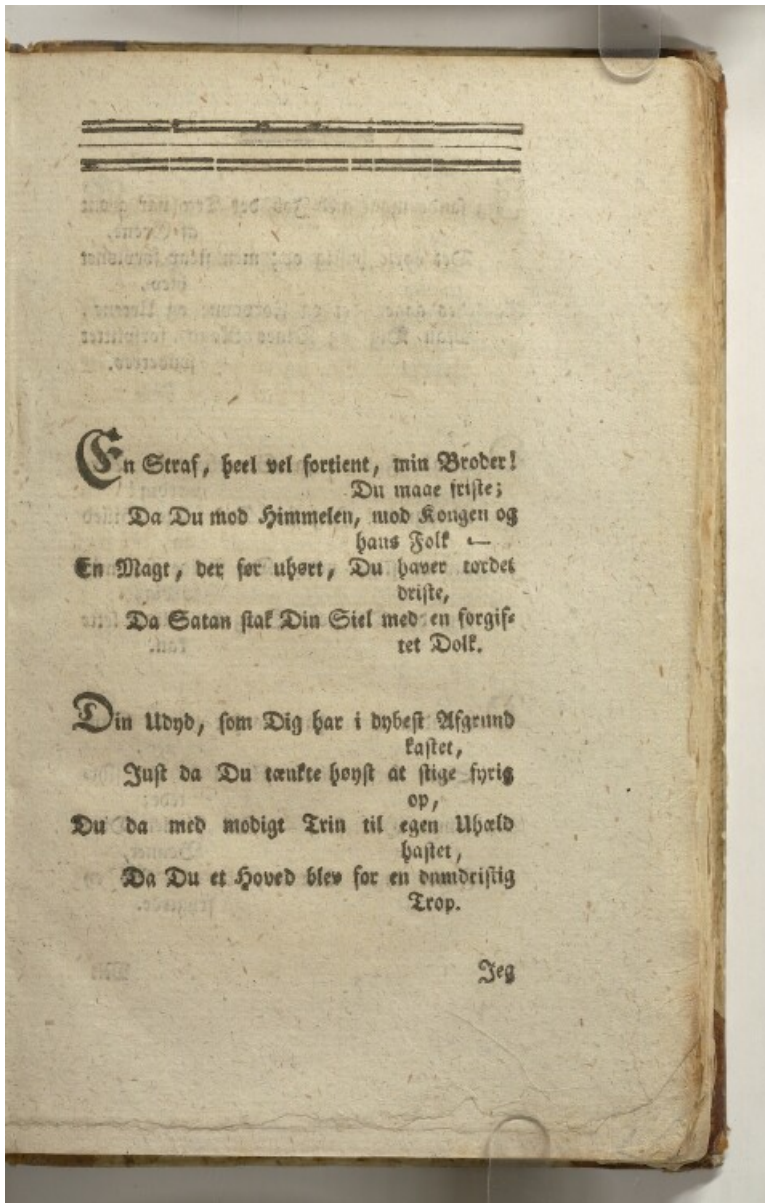 En Straf, heel vel fortient, min Broder!
Du maae friste;
Da Du mod Himmelen, mod Kongen og
hans Folk —
En Magt, der før uhørt, Du haver tordet
driste,
Da Satan stak Din Siel med en forgif⸗
tet Dolk.
Din Udyd, som Dig har i dybest Afgrund
kastet,
Just da Du tænkte høyst at stige fyrig
op,
Du da med modigt Trin til egen Uhæld
hastet,
Da Du et Hoved blev for en dumdristig
Trop.
Jeg